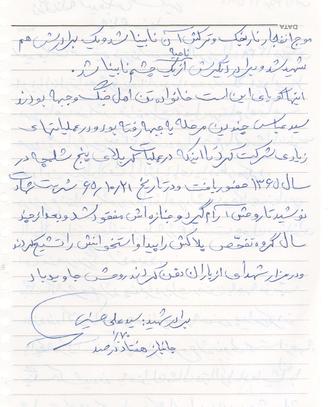 DATA
موج انفجار نارنجک و ترکش آن نابینا شد و یک برادرش هم
شهید شد و برادر دیگرش از ناحیه یک چشم نابینا شد.
اینها گویای این است خانواده‌شان اهل جنگ و جبهه بودند
سید عباس چندین مرحله به جبهه رفته بود و در عملیاتهای
زیادی شرکت کرد تا اینکه در عملیات کربلای پنج شلمچه در
سال ۱۳۶۵ حضور یافت و در تاریخ ۶۵/۱۰/۲۱ شربت شهادت
نوشید تا روحش آرام گیرد و جنازه‌اش مفقود شد و بعد از چند
سال گروه تفحص پلاکش را پیدا و استخوانش را تشییع کردند
و در مزار شهدای از یاران دفن کردند روحش جاوید باد
برادر شهید: سید علی حسینی
جانباز هفتاد درصد
٪۷۰